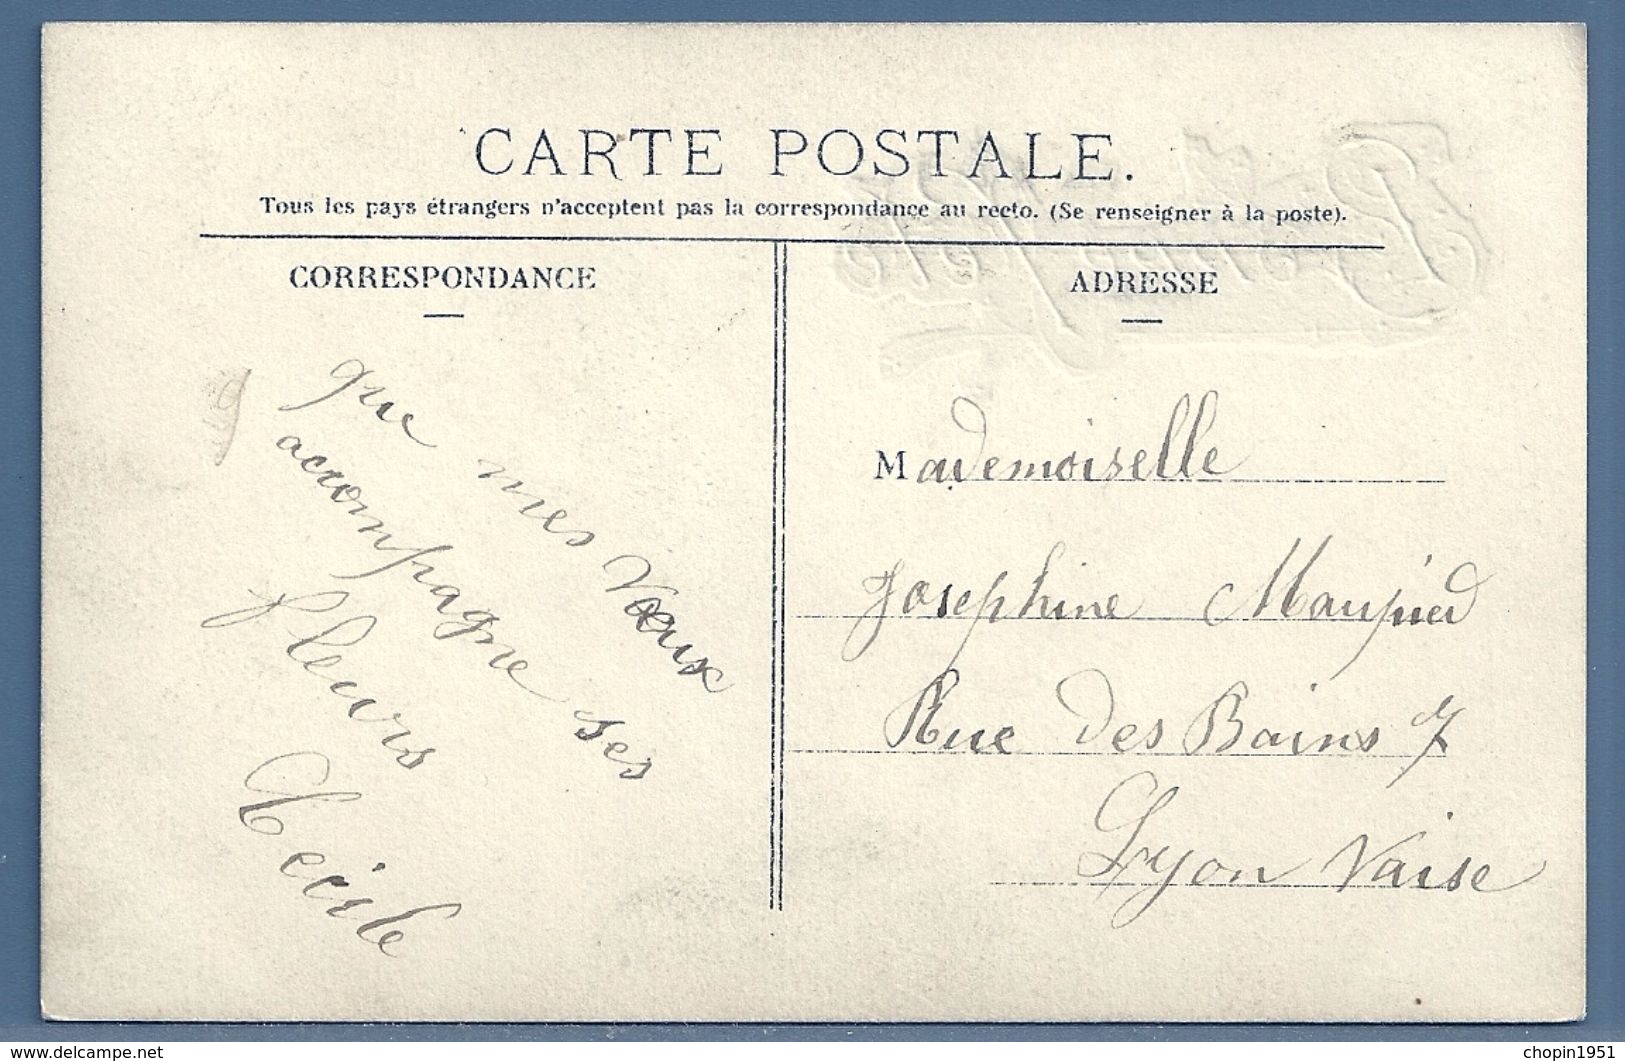 CARTE POSTALE.
Tous les pays étrangers n'acceptent pas la correspondance au recto. (Se renseigner à la poste).
CORRESPONDANCE
que mes Vœux
accompagne ses
fleurs
Cécile
ADRESSE
Mademoiselle
Josephine Maupied
Rue des Bains 7
Lyon Vaise
delcampe.net
chopin1951